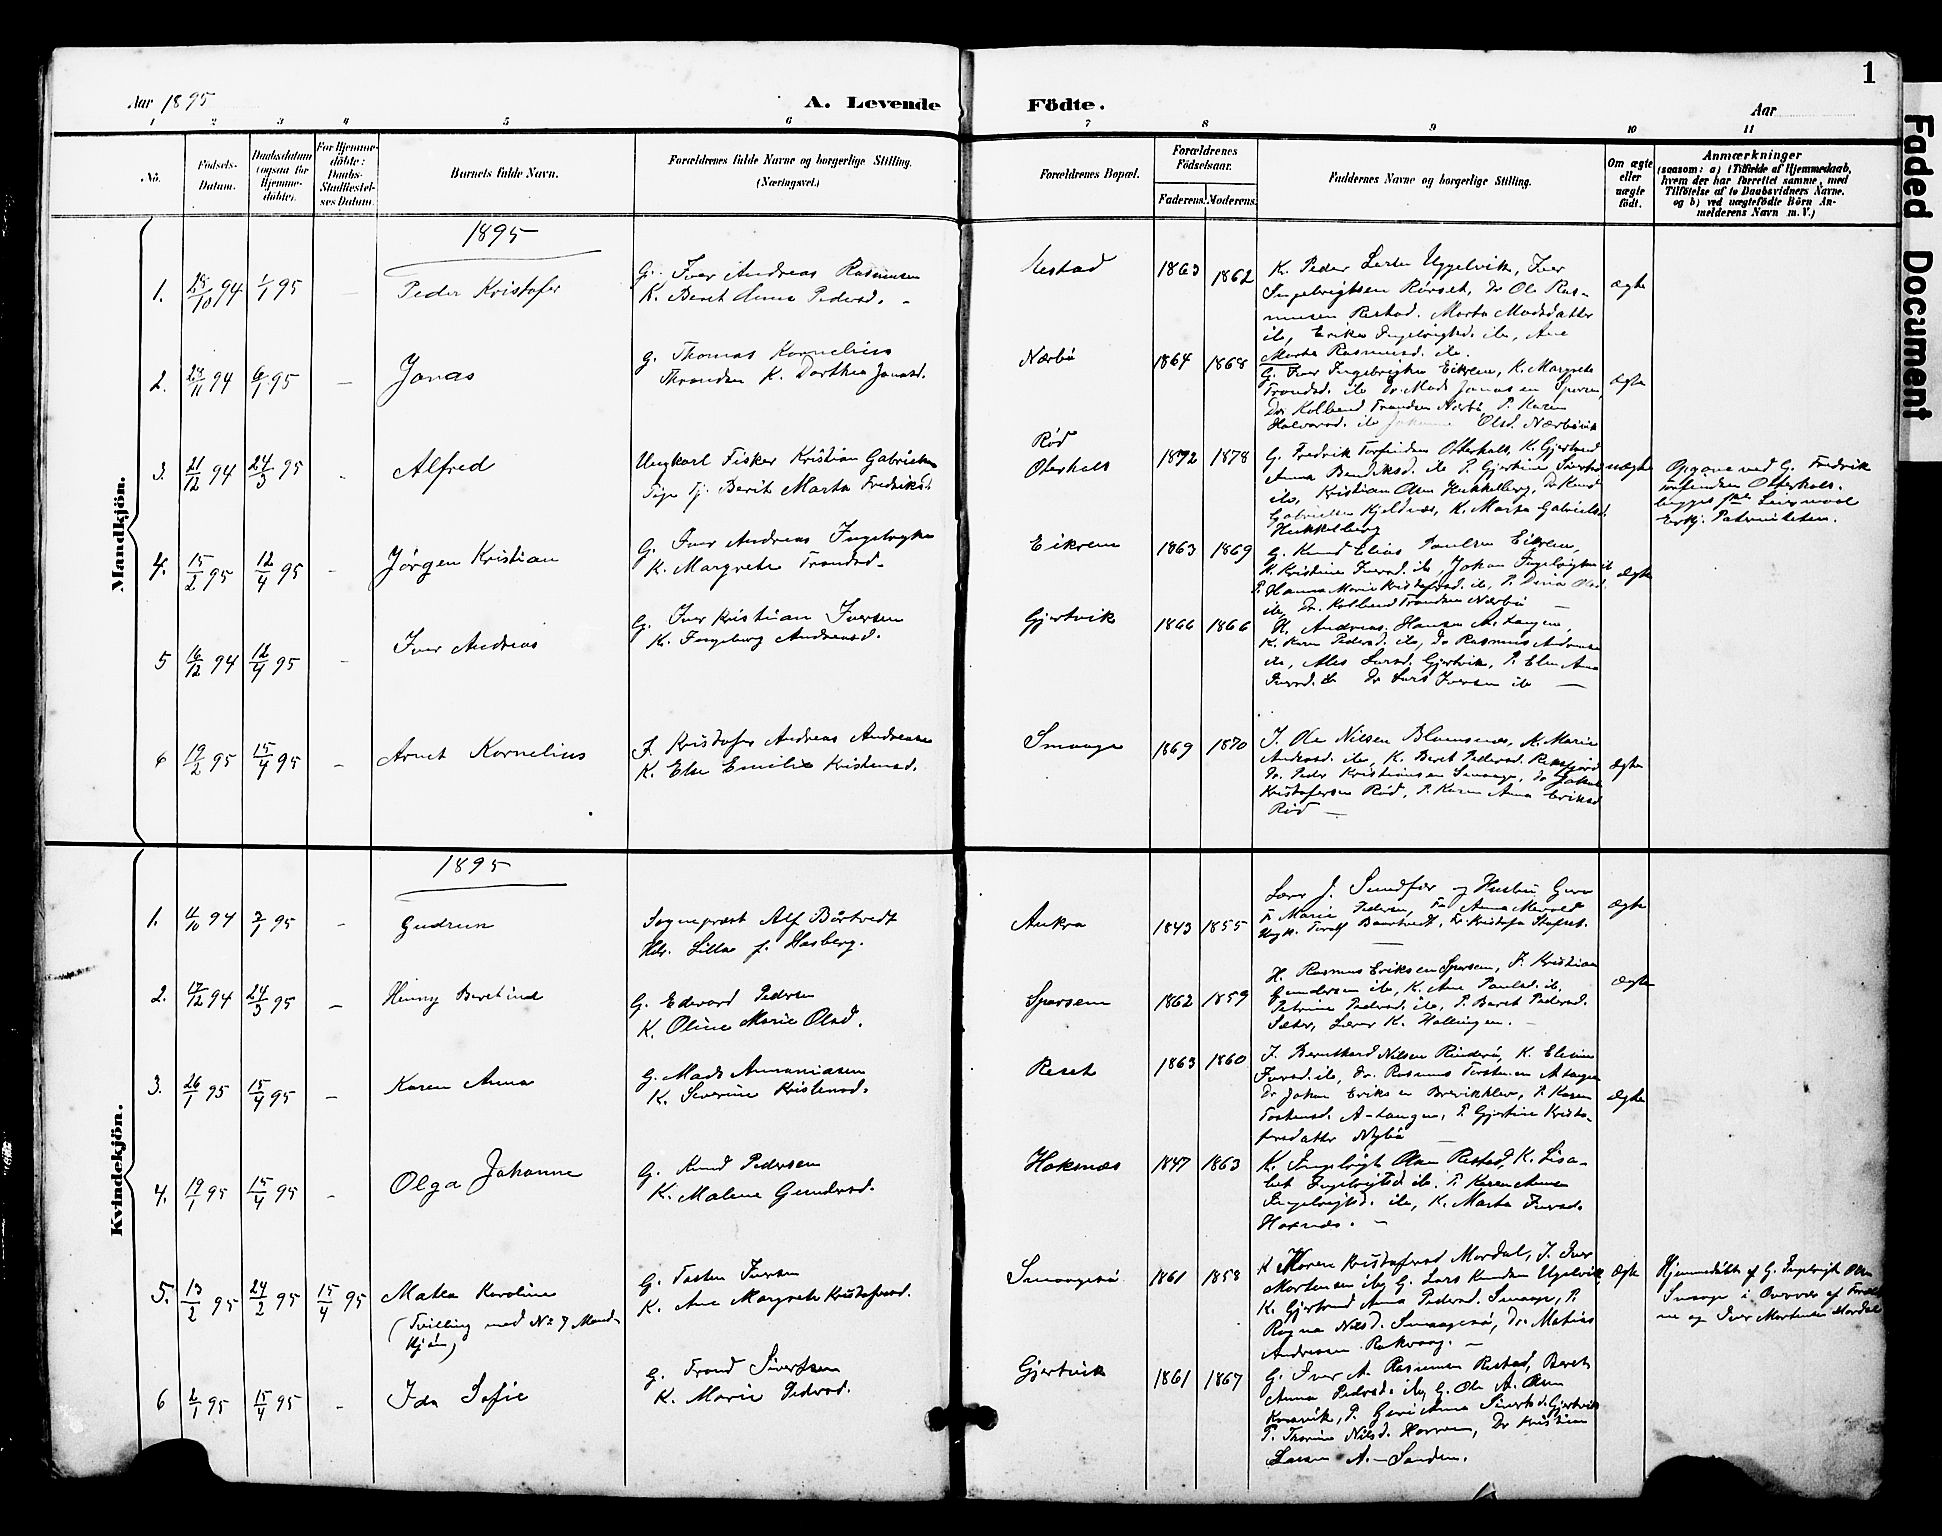 1
Faded Document
Aar 1895
A. Levende Födte.
Aar
1 2 3 4 5 6 7 8 9 10 11
No.
Födsels-Datum.
Daabsdatum (ogsaa for Hjemme-döbte).
For Hjemme-döbte: Daabs-Stadfæstel-ses Datum.
Barnets fulde Navn.
Forældrenes fulde Navne og borgerlige Stilling.
(Næringsvei.)
Forældrenes Bopæl.
Forældrenes Födselsaar.
Faderens. Moderens.
Faddernes Navne og borgerlige Stilling.
Om ægte eller uægte födt.
Anmærkninger
(saasom: a) i Tilfælde af Hjemmedaab, hvem der har forrettet samme, med Tilföielse af to Daabsvidners Navne, og b) ved uægtefödte Börn An-melderens Navn m. V.)
Mandkjön.
1895
1. 94 1/1 95 — Peder Kristofer
G. Iver Andreas Rasmussen
K. Beret Anna Pedersd. -
Restad 1863 1862
K. Peder Larsen Uggelvik, Iver
Ingebrigtsen Rørset, Dr Ole Ras-
mussen Restad. Marta Madsdatter
ib, Ingebrigtsd. ib, Ane
Marta Rasmusd. ib.
ægte
2. 94 6/1 95 — Jonas
G. Thomas Kornelius
Throndsen K. Dorthea Jonasd.
Nærbø 1864 1868
G. Iver Ingebrigtsen Eikrem, K. Margrete
Trondsd. ib Dr. Mads Jonassen Sporsem,
Dr. Kolbend Trondsen Nærbø, P. Karen
Halvorsd. ib Johanna Olsd. Nærbøvik
ægte
3. 21/12 94 24/3 95 - Alfred
Ungkarl Fisker Kristian Gabrielsen
Pige Tj. Berit Marta Fredriksd.
Rød
Oterhals 1872 1878
G. Fredrik Torfindsen Otterhals, K. Gjertrud
Anna Bendiksd. ib P. Gjertine Sivertsd.
ib, Kristian Olsen Hukkelberg, Dr Knud
Gabrielsen Kjeldnæs, K. Marta Gabrielsd.
Hukkelberg
uægte
Opgave ved G. Fredrik
Torfindsen Otterhals.
Erkj. Paterniteten.
4. 15/2 95 12/4 95 - Jørgen Kristian
G. Iver Andreas Ingebrigtsen
K. Margrete Trondsd.
Eikrem 1863 1869
G. Knud Elias Paulsen Eikrem,
K. Kristine Iversd. ib, Johan Ingebrigtsen ib
P. Hanna Marie Kristofersd. ib, P. Dina Olsd.
ib, Dr. Kolbend Trondsen Nærbø —
ægte
5 16/12 94 12/4 95 - Iver Andreas
G. Iver Kristian Iversen
K. Ingeborg Andreasd.
Gjertvik 1866 1866
K. Andreas Hansen A-Langen,
K. Karen Pedersd. ib, Dr Rasmus Andreassen
ib, Ales Larsd. Gjertvik, P. Elen Ane
Iversd. ib Dr Lars Iversen ib —
6 19/2 95 15/4 95 - Arnt Kornelius
I. Kristofer Andreas Andreasen
K. Else Emilie Kristensd.
Smaage 1869 1870
I. Ole Nilsen Bloemsnes, K. Marie
Andreasd. ib, K. Beret Pedersd.
Dr. Peder Kristiansen Smaage, Dr Johan
Kristofersen Rød, P. Karen Anna Eriksd
Rød —
ægte
Kvindekjön.
1895
1. 4/10 94 95 - Gudrun
Sogneprest Alf Bårtvedt
Hdr. Lilla f. Hasberg.
Aukra 1843 1855
Lærer J. Sundfær og Hustru Guro
Fr. Marie Pedersen, Fr. Anna
Ungk. Torolf Baartvedt, Fr. Kristofa
ægte
2. 17/12 94 24/3 95 — Henny Berntine
G. Edvard Pedersen
K. Oline Marie Olsd.
Sporsem 1862 1859
H. Rasmus Eriksen Sporsem, I. Kristian
Gundersen ib, K. Ane Paulsd. ib,
Petrine Pedersd. ib, P. Beret Pedersd.
Sæter, Lærer K. Hollingen. -
ægte
3. 26/1 95 15/4 95 — Karen Anna
G. Mads Annaniasen
K. Severine Kristensd.
Reset 1863 1860
I. Bernthard Nilsen Rinderø, K. Elesine
Iversd. ib, Dr. Rasmus Torstensen A-Langen
Dr Johan Eriksen Brevikhlev, P. Karen
Tostensd. A-Langen, P. Gjertine Kristo-
fersdatter Nybø —
ægte
4. 19/1 95 15/4 95 - Olga Johanne
G. Knud Pedersen
K. Malene Gundersd.
Hoksnæs 1847 1863
K. Ingebrigt Olsen Restad, K. Lisa-
bet Ingebrigtsd. ib. P. Karen Anna
Ingebrigtsd. ib, K. Marta Iversd.
Hoksnæs. -
5. 13/2 95 24/2 95 15/4 95 Matea Karoline
(Tvilling med No 7 Mand-
kjøn)
G. Tosten Iversen
K. Ane Margrete Kristofersd.
Smaagesø 1861 1858
K Maren Kristofersd Mordal, I. Iver
Mortensen ib, G. Lars Knudsen Ugelvik,
K. Gjertrud Anna Pedersd. Smaage, P.
Ragna Nilsd. Smaagesø, Dr. Matias
Andreasen Rakvaag. —
ægte
Hjemmedøbt af G. Ingebrigt Olsen
Smaage i Overvær af Foræld
ne og Iver Mortensen Mordal
6 2/1 95 15/4 95 - Ida Sofie
G. Trond Sivertsen
K. Marie Pedersd.
Gjertvik 1861 1867
G. Iver A. Rasmussen Restad, Beret
Anna Pedersd. ib, G. Ole A. Olsen
P. Guri Anna Sivertsd. Gjertvik
P. Thorine Nilsd. Horrem, Dr Kristian
Larsen A.-Sanden.